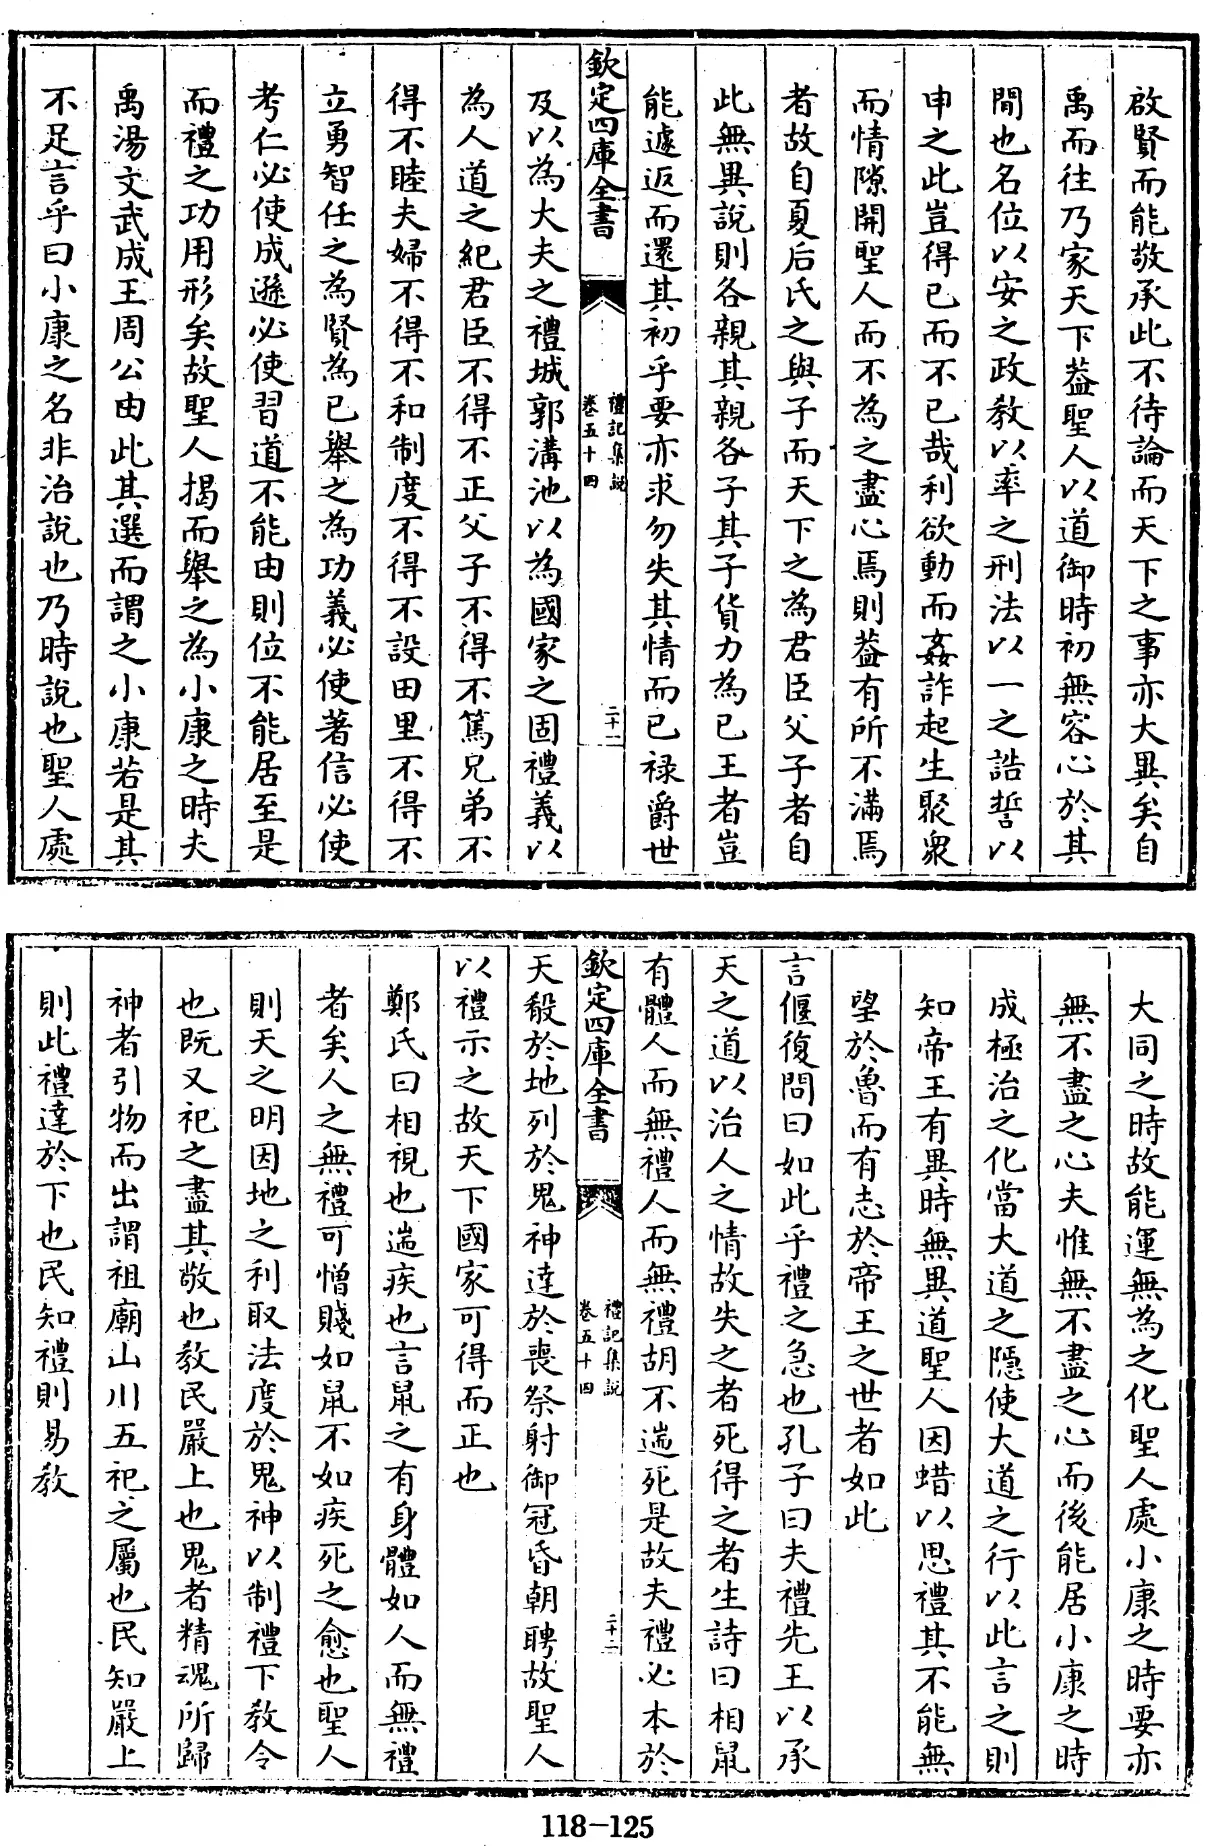 啟賢而能敬承此不待論而天下之事亦大異矣自
禹而往乃家天下葢聖人以道御時初無容心於其
間也名位以安之政教以率之刑法以一之誥誓以
申之此豈得已而不已哉利欲動而姦詐起生聚衆
而情隙開聖人而不為之盡心焉則葢有所不滿焉
者故自夏后氏之與子而天下之為君臣父子者自
此無異說則各親其親各子其子貨力為已王者豈
能遽返而還其初乎要亦求勿失其情而已禄爵世
欽定四庫全書
禮記集說
卷五十四
二十二
及以為大夫之禮城郭溝池以為國家之固禮義以
為人道之紀君臣不得不正父子不得不篤兄弟不
得不睦夫婦不得不和制度不得不設田里不得不
立勇智任之為賢為已舉之為功義必使著信必使
考仁必使成遜必使習道不能由則位不能居至是
而禮之功用形矣故聖人揭而舉之為小康之時夫
禹湯文武成王周公由此其選而謂之小康若是其
不足言乎曰小康之名非治說也乃時說也聖人處
大同之時故能運無為之化聖人處小康之時要亦
無不盡之心夫惟無不盡之心而後能居小康之時
成極治之化當大道之隱使大道之行以此言之則
知帝王有異時無異道聖人因蜡以思禮其不能無
望於魯而有志於帝王之世者如此
言偃復問曰如此乎禮之急也孔子曰夫禮先王以承
天之道以治人之情故失之者死得之者生詩曰相鼠
有體人而無禮人而無禮胡不遄死是故夫禮必本於
欽定四庫全書
禮記集說
卷五十四
二十二
天殽於地列於鬼神達於喪祭射御冠昏朝聘故聖人
以禮示之故天下國家可得而正也
鄭氏曰相視也遄疾也言鼠之有身體如人而無禮
者矣人之無禮可憎賤如鼠不如疾死之愈也聖人
則天之明因地之利取法度於鬼神以制禮下教令
也既又祀之盡其敬也教民嚴上也鬼者精魂所歸
神者引物而出謂祖廟山川五祀之屬也民知嚴上
則此禮達於下也民知禮則易教
118-125